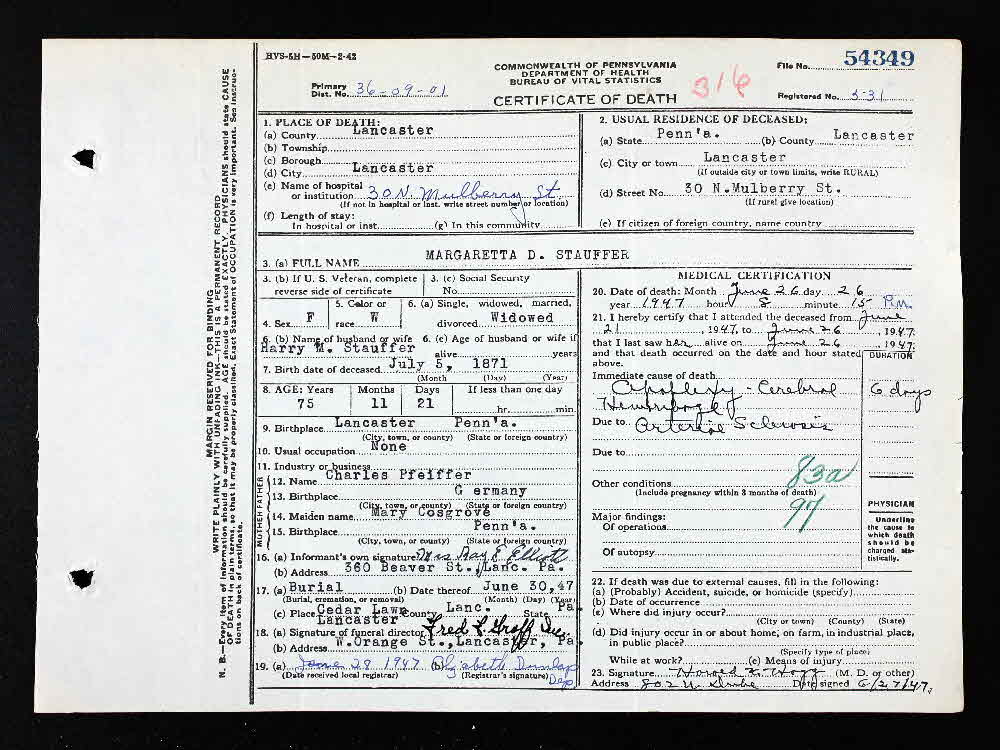 HVS-5H—50M—2-42
COMMONWEALTH OF PENNSYLVANIA
DEPARTMENT OF HEALTH
BUREAU OF VITAL STATISTICS
CERTIFICATE OF DEATH
File No. 54349
Primary Dist. No. 36-09-01
316
Registered No. 531
MARGIN RESERVED FOR BINDING
WRITE PLAINLY WITH UNFADING INK—THIS IS A PERMANENT RECORD
N. B.—Every item of information should be carefully supplied. AGE should be stated EXACTLY. PHYSICIANS should state CAUSE
OF DEATH in plain terms, so that it may be properly classified. Exact Statement of OCCUPATION is very important. See instruc-
tions on back of certificate.
1. PLACE OF DEATH:
(a) County Lancaster
(b) Township
(c) Borough
(d) City Lancaster
(e) Name of hospital
or institution 30 N. Mulberry St.
(If not in hospital or inst. write street number or location)
(f) Length of stay:
In hospital or inst. (g) In this community
2. USUAL RESIDENCE OF DECEASED:
(a) State Penn'a. (b) County Lancaster
(c) City or town Lancaster
(If outside city or town limits, write RURAL)
(d) Street No. 30 N.Mulberry St.
(If rural give location)
(e) If citizen of foreign country, name country
3. (a) FULL NAME MARGARETTA D. STAUFFER
3. (b) If U. S. Veteran, complete
reverse side of certificate
3. (c) Social Security
No.
4. Sex F
5. Color or
race W
6. (a) Single, widowed, married,
divorced Widowed
6. (b) Name of husband or wife
Harry M. Stauffer
6. (c) Age of husband or wife if
alive years
7. Birth date of deceased July 5, 1871
(Month (Day) (Year)
8. AGE: Years Months Days If less than one day
75 11 21 hr. min
9. Birthplace Lancaster Penn'a.
(City, town, or county) (State or foreign country)
10. Usual occupation None
11. Industry or business
FATHER
12. Name Charles Pfeiffer
13. Birthplace G ermany
(City, town, or county) (State or foreign country)
MOTHER
14. Maiden name Mary Cosgrove
15. Birthplace Penn'a.
(City, town, or county) (State or foreign country)
16. (a) Informant's own signature Mrs Ray E Elliott
(b) Address 360 Beaver St., Lanc. Pa.
17. (a) Burial (b) Date thereof June 30,47
(Burial, cremation, or removal) (Month) (Day) (Year)
(c) Place Cedar Lawn County Lanc. State Pa
Lancaster
18. (a) Signature of funeral director Fred F. Groff Inc.
(b) Address W.Orange St., Lancaster, Pa.
19. (a) June 28 1947 (b) Elizabeth Dunlap
(Date received local registrar) (Registrar's signature) Dep
MEDICAL CERTIFICATION
20. Date of death: Month June 26 day 26
year 1947 hour 8 minute 15 P.m.
21. I hereby certify that I attended the deceased from June
21, 1947, to June 26, 1947.
that I last saw her alive on June 26, 1947;
and that death occurred on the date and hour stated
above.
DURATION
Immediate cause of death
Apoplexy - Cerebral 6 days
Hemorrhage
Due to Arterial Sclerosis
Due to
83a
Other conditions
(Include pregnancy within 3 months of death)
97
Major findings:
Of operations
Of autopsy
PHYSICIAN
Underline
the cause to
which death
should be
charged sta-
tistically.
22. If death was due to external causes, fill in the following:
(a) (Probably) Accident, suicide, or homicide (specify)
(b) Date of occurrence
(c) Where did injury occur?
(City or town) (County) (State)
(d) Did injury occur in or about home, on farm, in industrial place,
in public place?
(Specify type of place)
While at work? (e) Means of injury
23. Signature (M. D. or other)
Address 802 N. Date signed 6/27/47.